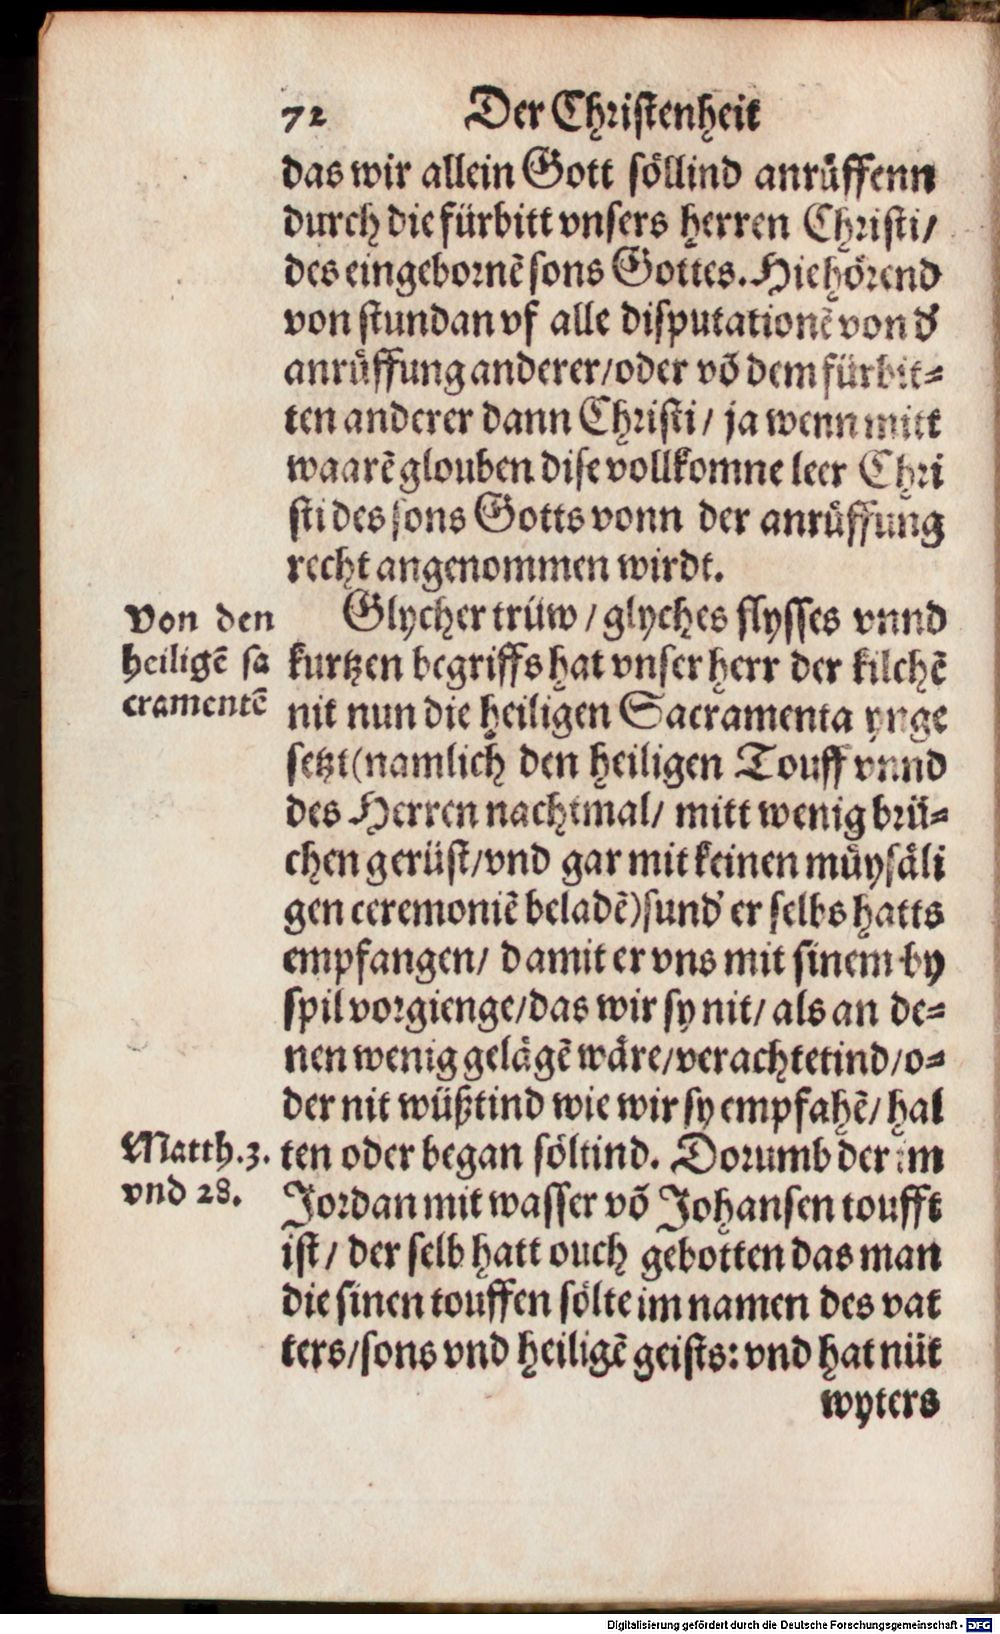 72 Der Christenheit
das wir allein Gott söllind anrůffenn
durch die fürbitt vnsers herren Christi/
des eingebornē sons Gottes. Hie hörend
von stundan vf alle disputationē von d'
anrůffung anderer/oder vō dem fürbit=
ten anderer dann Christi/ ja wenn mitt
waarē glouben dise vollkomne leer Chri
sti des sons Gotts vonn der anrůffung
recht angenommen wirdt.
Von den
heiligē sa
cramentē
Glycher trüw/ glyches flysses vnnd
kurtzen begriffs hat vnser herr der kilchē
nit nun die heiligen Sacramenta ynge
setzt(namlich den heiligen Touff vnnd
des Herren nachtmal/ mitt wenig brü=
chen gerüst/vnd gar mit keinen müysäli
gen ceremoniē beladē)sund' er selbs hatts
empfangen/ damit er vns mit sinem by
spil vorgienge/das wir sy nit/ als an de=
nen wenig gelägē wäre/verachtetind/o=
der nit wüßtind wie wir sy empfahē/ hal
Matth.3.
vnd 28.
ten oder began söltind. Dorumb der im
Jordan mit wasser vō Johansen toufft
ist/ der selb hatt ouch gebotten das man
die sinen touffen sölte im namen des vat
ters/sons vnd heiligē geists: vnd hat nüt
wyters
Digitalisierung gefördert durch die Deutsche Forschungsgemeinschaft - DFG